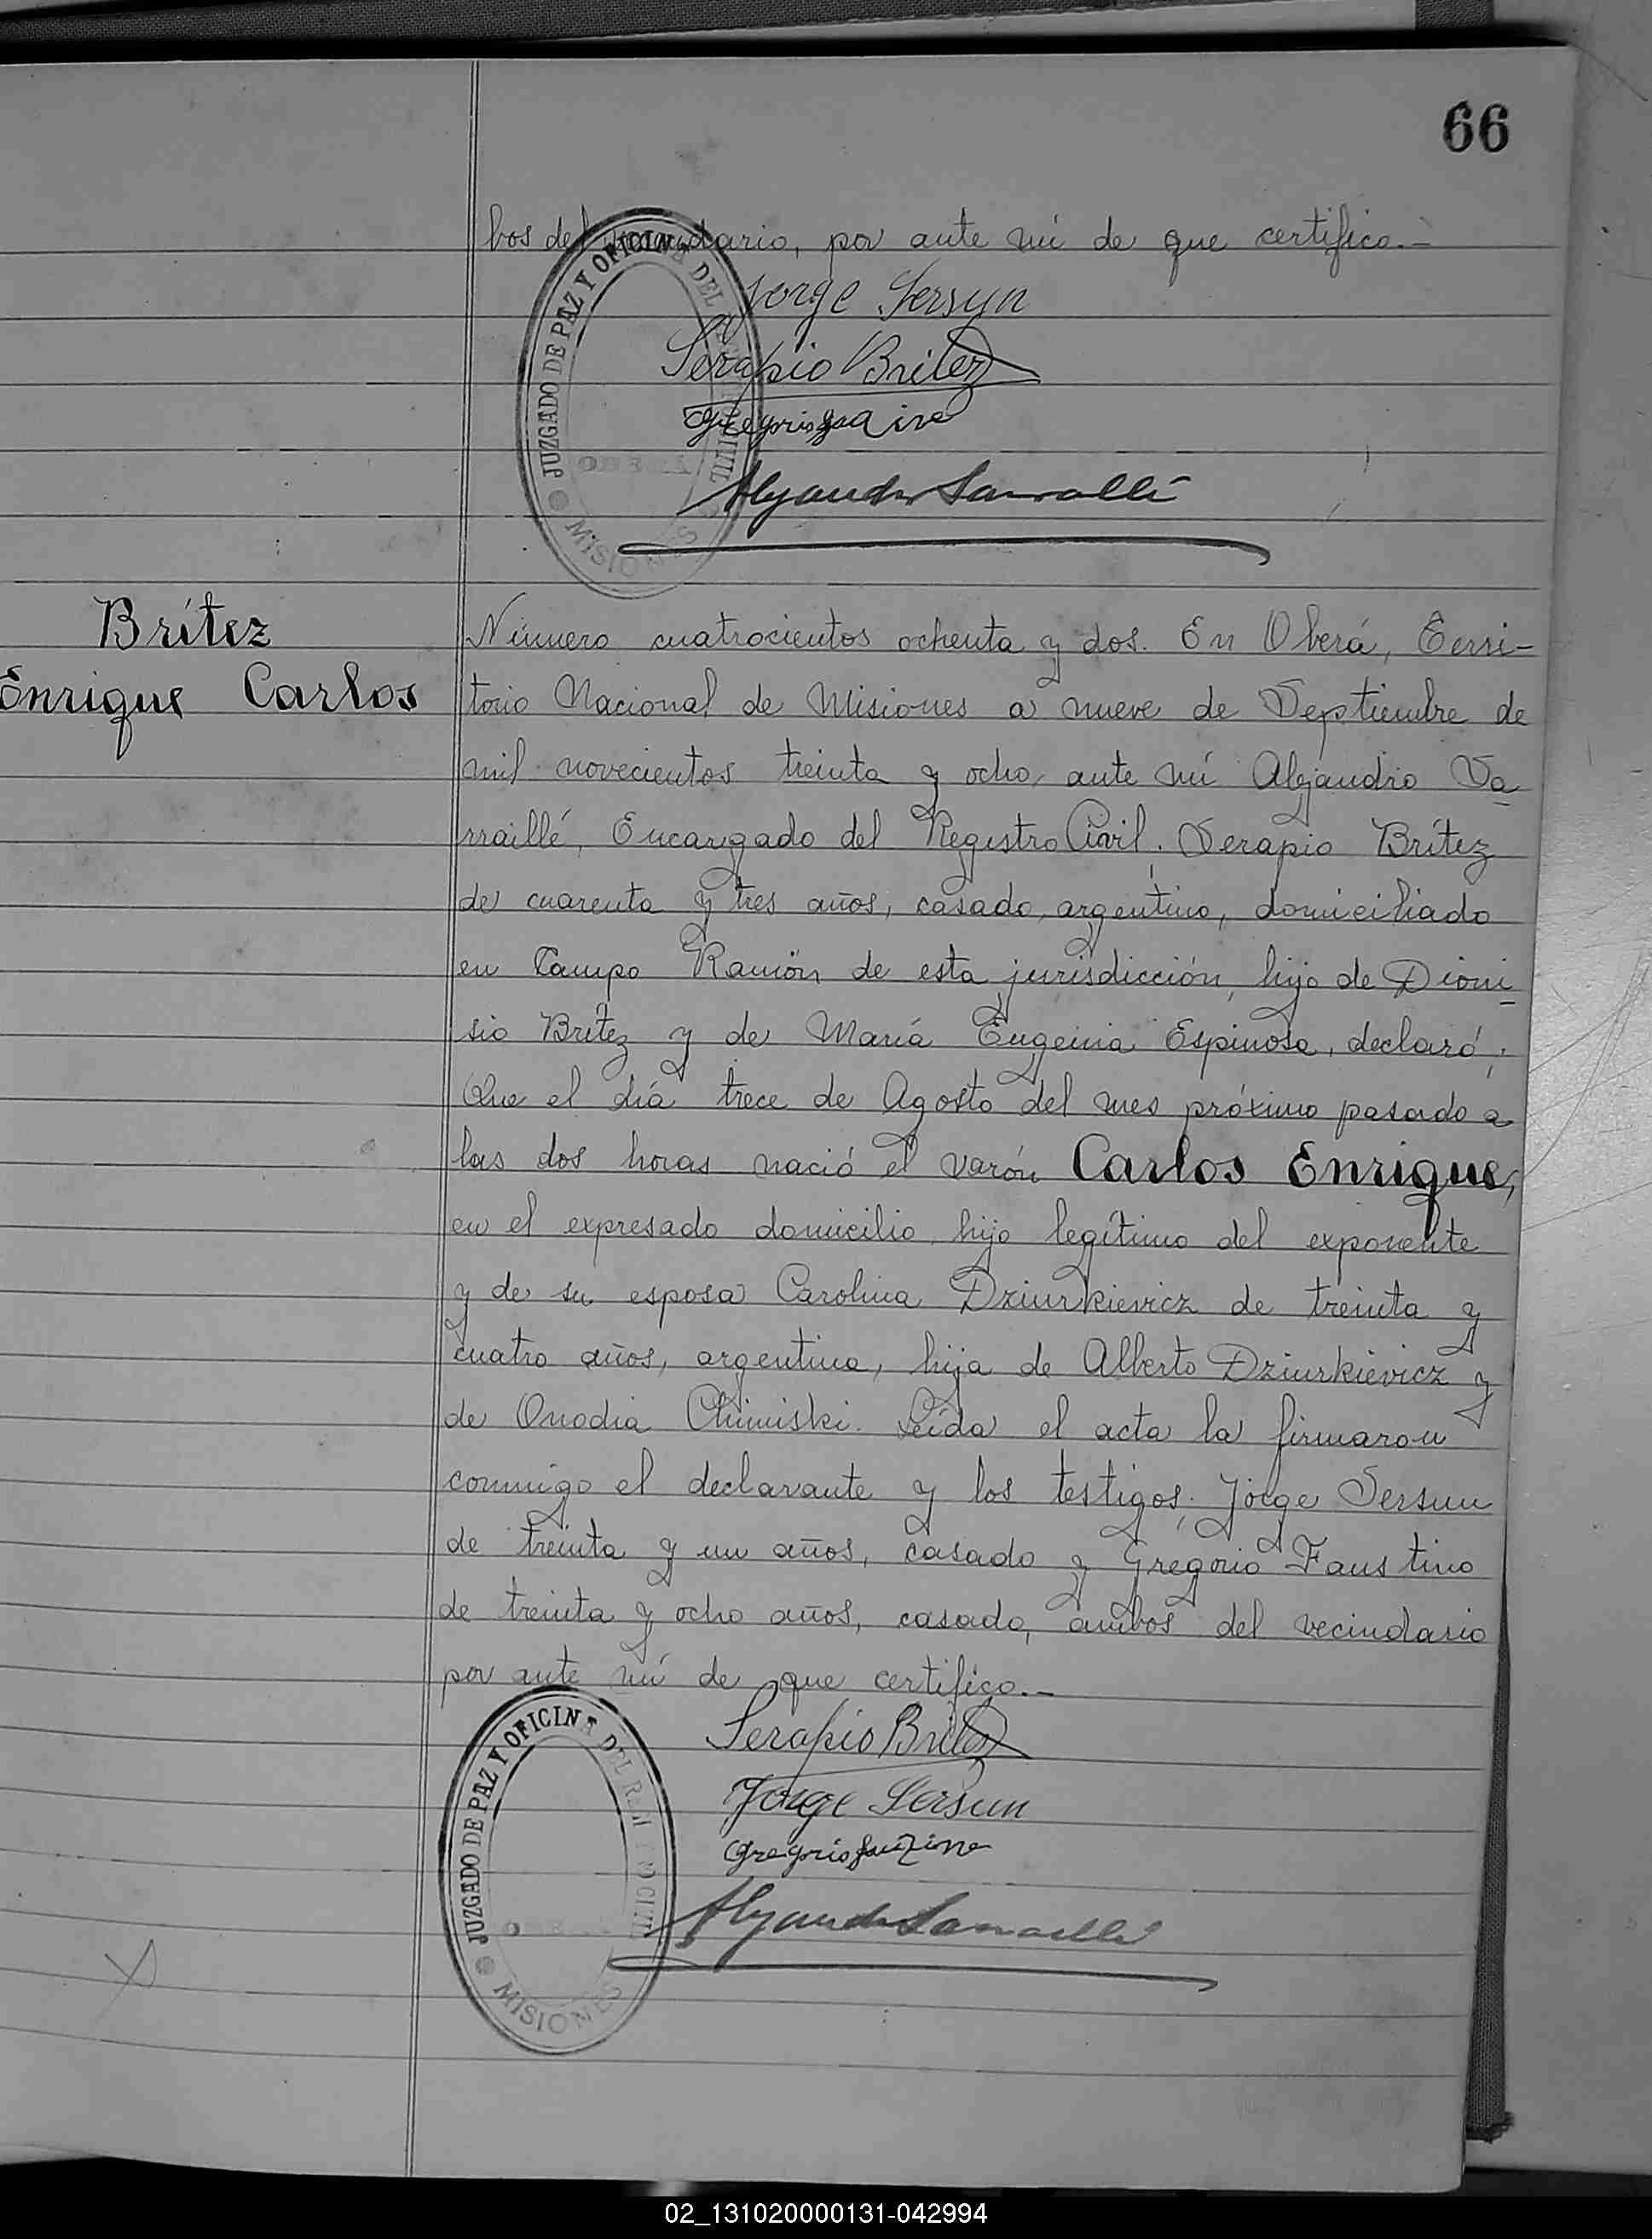 66
bos del vecindario, por ante mí de que certifico.-
Jorge Sersun
Serapio Britez
Alejandro Sarraillé
JUZGADO DE PAZ Y OFICINA DEL
MISIONES
Brítez
Enrique Carlos
Número cuatrocientos ochenta y dos. En Oberá, Terri-
torio Nacional de Misiones a nueve de Septiembre de
mil novecientos treinta y ocho, ante mí Alejandro Sa-
rraillé, Encargado del Registro Civil, Serapio Brítez
de cuarenta y tres años, casado, argentino, domiciliado
en Campo Ramón de esta jurisdicción, hijo de Dioni-
sio Brítez y de María Eugenia Espinosa, declaró;
Que el día trece de Agosto del mes próximo pasado a
las dos horas nació el varón Carlos Enrique,
en el expresado domicilio, hijo legítimo del exponente
y de su esposa Carolina Dziurkievicz de treinta y
cuatro años, argentina, hija de Alberto Dziurkievicz y
de Onodia Chimiski. Leída el acta la firmaron
conmigo el declarante y los testigos; Jorge Sersun
de treinta y un años, casado y Gregorio Faustino
de treinta y ocho años, casado, ambos del vecindario
por ante mí de que certifico.-
Serapio Britez
Jorge Sersun
Gregorio Faustino
Alejandro Sarraillé
JUZGADO DE PAZ Y OFICINA DEL
MISIONES
02_131020000131-042994